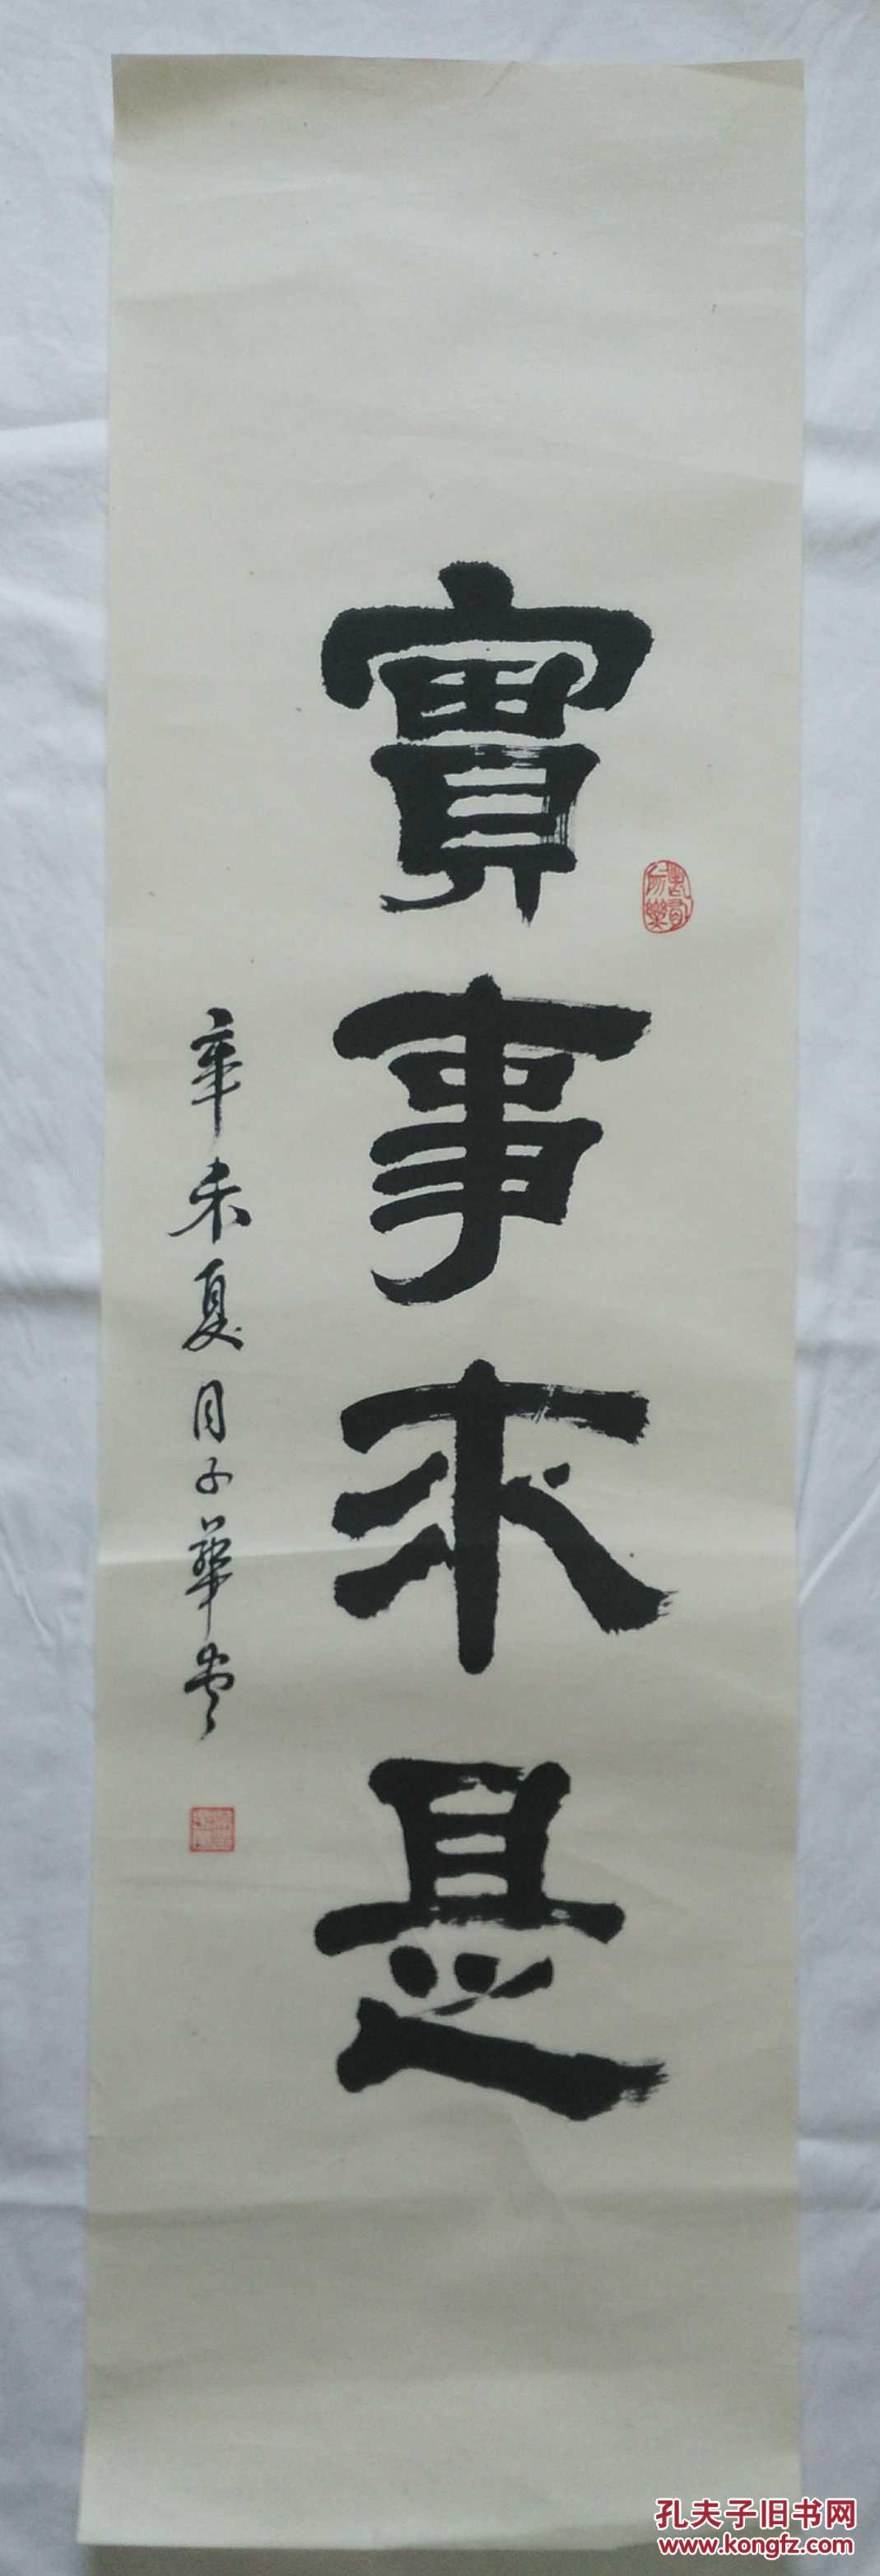 實事求是
辛未夏月小華書
孔夫子旧书网
www.kongfz.com